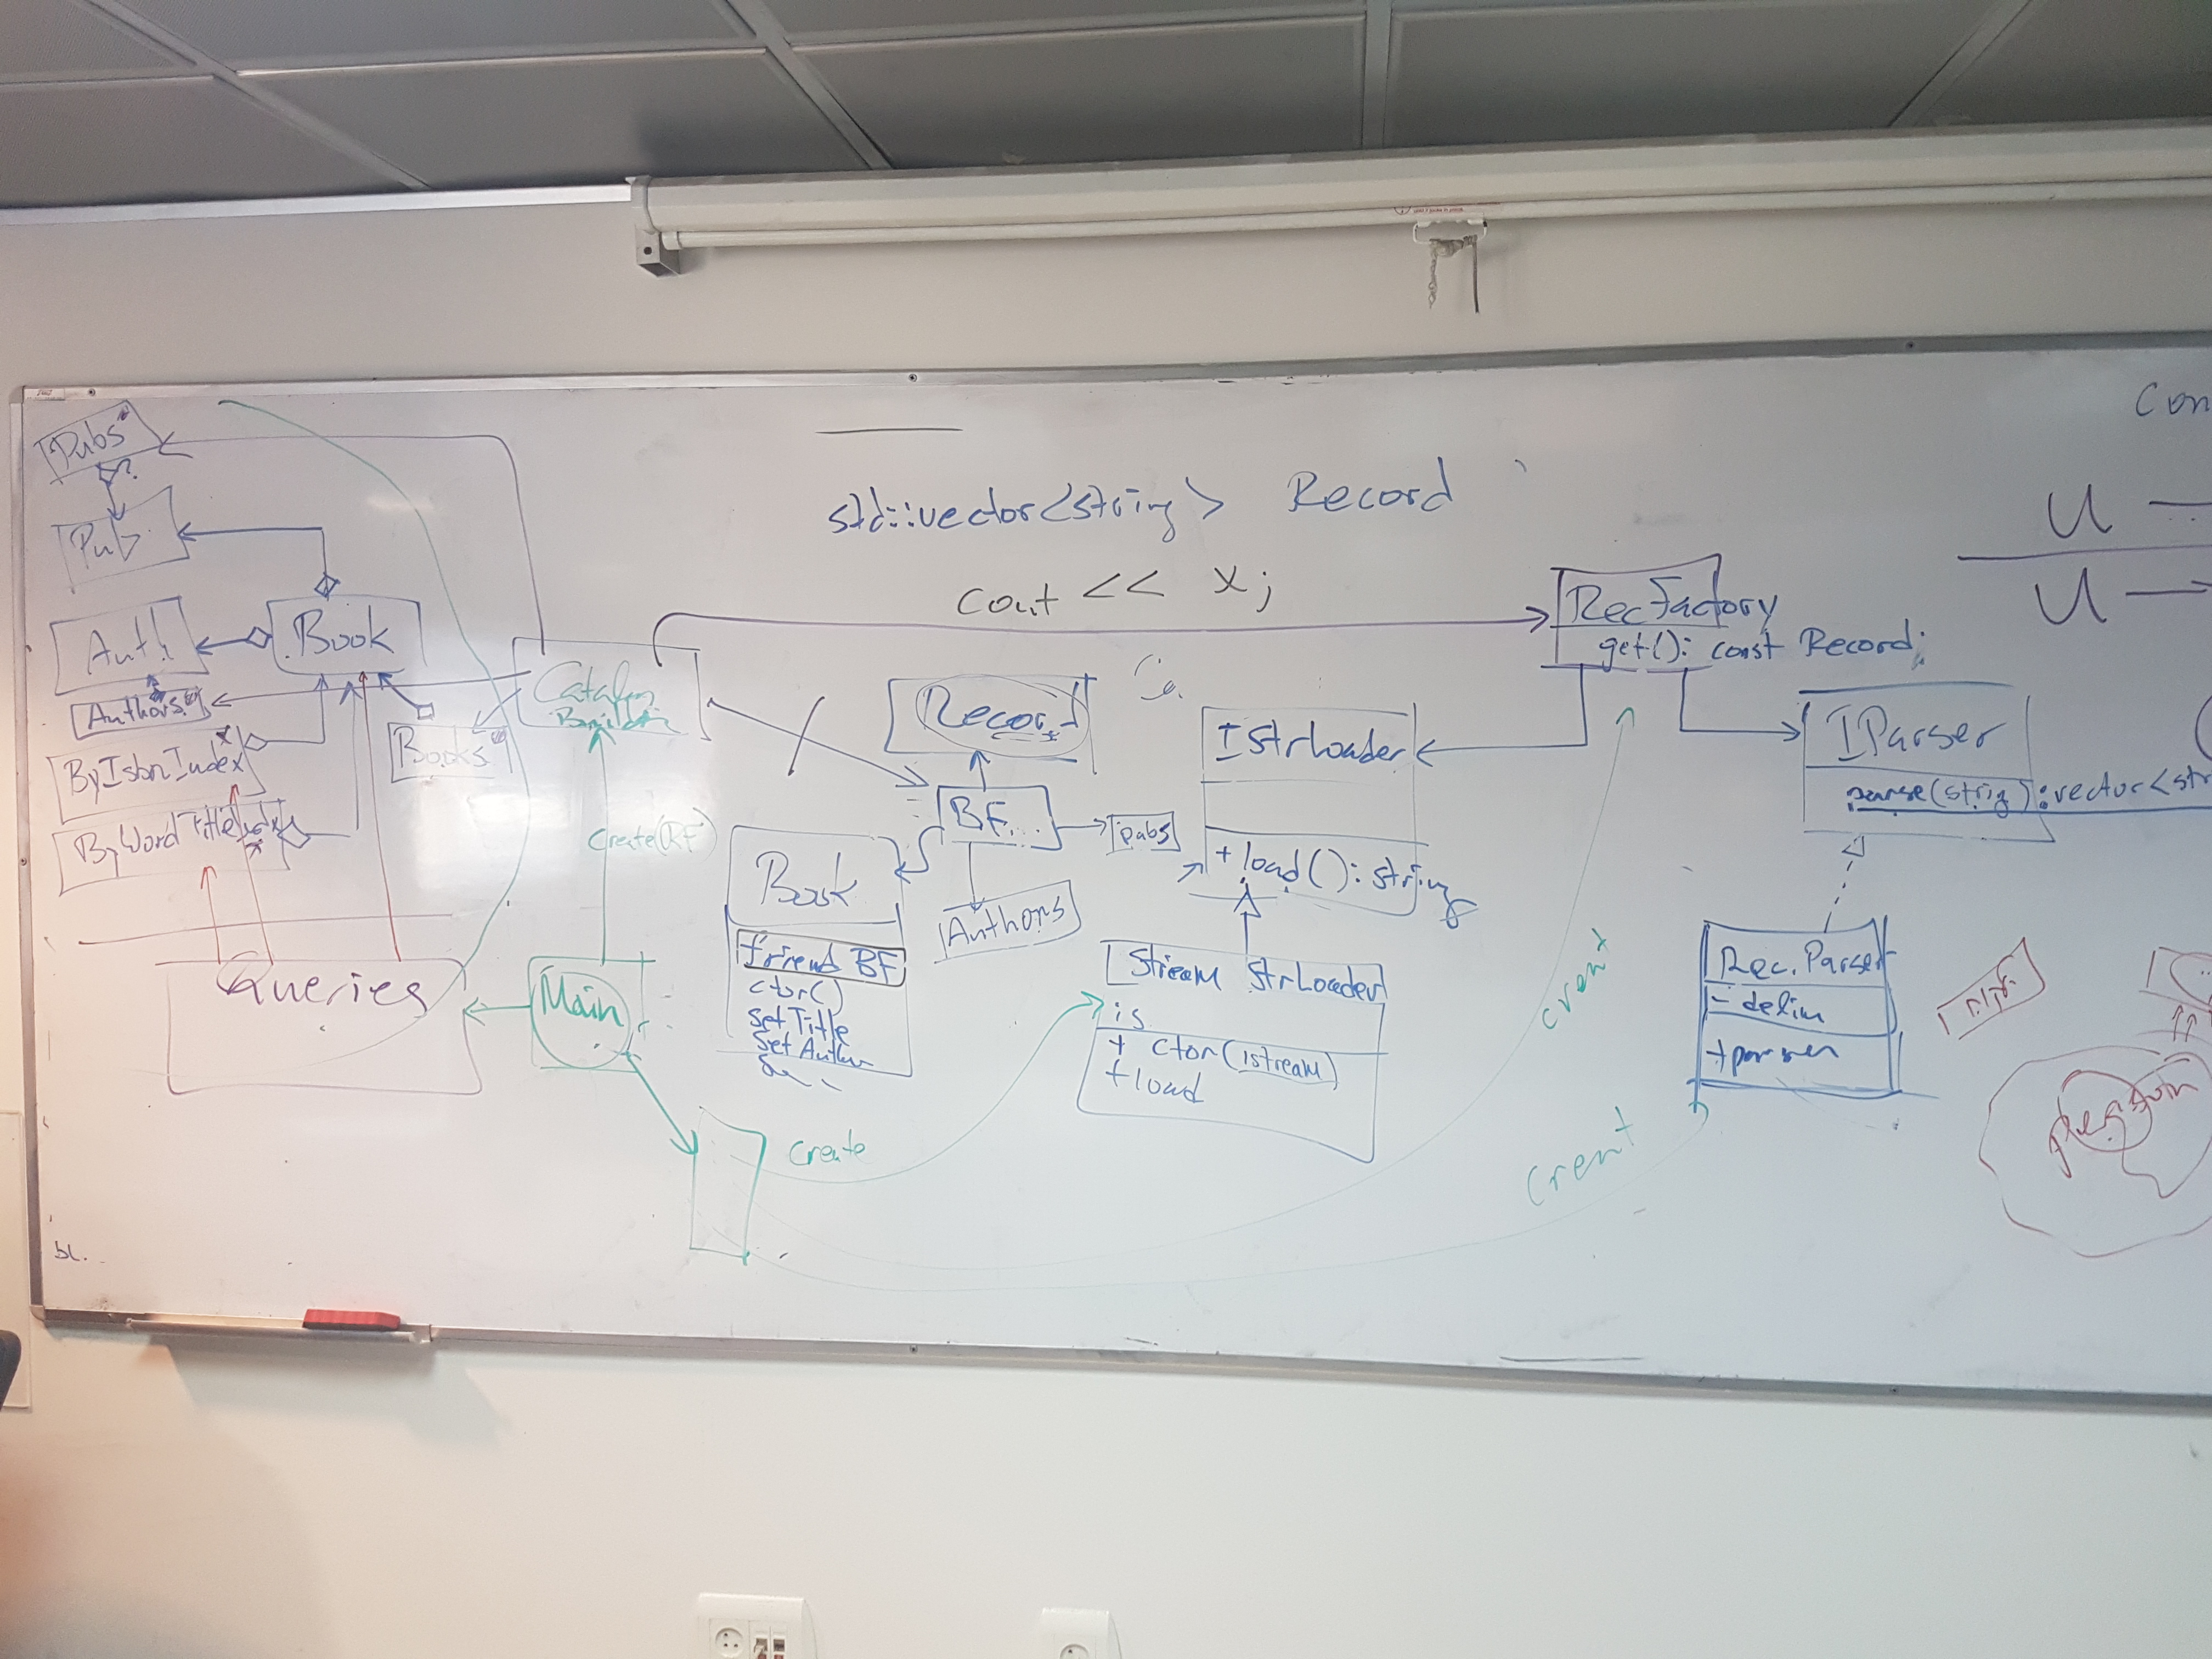 Pubs
Pub
Auth
Book
Authors
ByIsbnIndex
ByWordTitleIndex
Books
Catalog
Queries
Main
create(RF)
create
std::vector<string> Record
cout << x;
Record
BF...
pubs
Authors
Book
friend BF
ctor()
set Title
set Author
IStrLoader
+ load(): string
Stream StrLoader
is
+ ctor(istream)
+ load
RecFactory
get(): const Record;
IParser
parse(string): vector<str
Rec. Parser
- delim
+ parser
creat
creat
Con
U —
U →
bl.